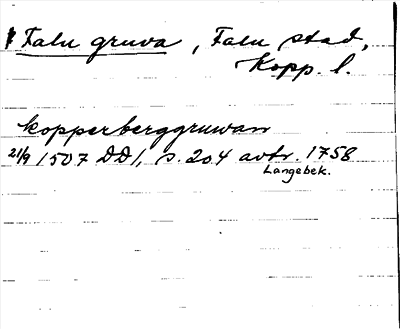 Falu gruva, Falu stad,
Kopp. l.
kopperberggruwan
21/9 1507 DD1, s. 204 avtr. 1758
Langebek.